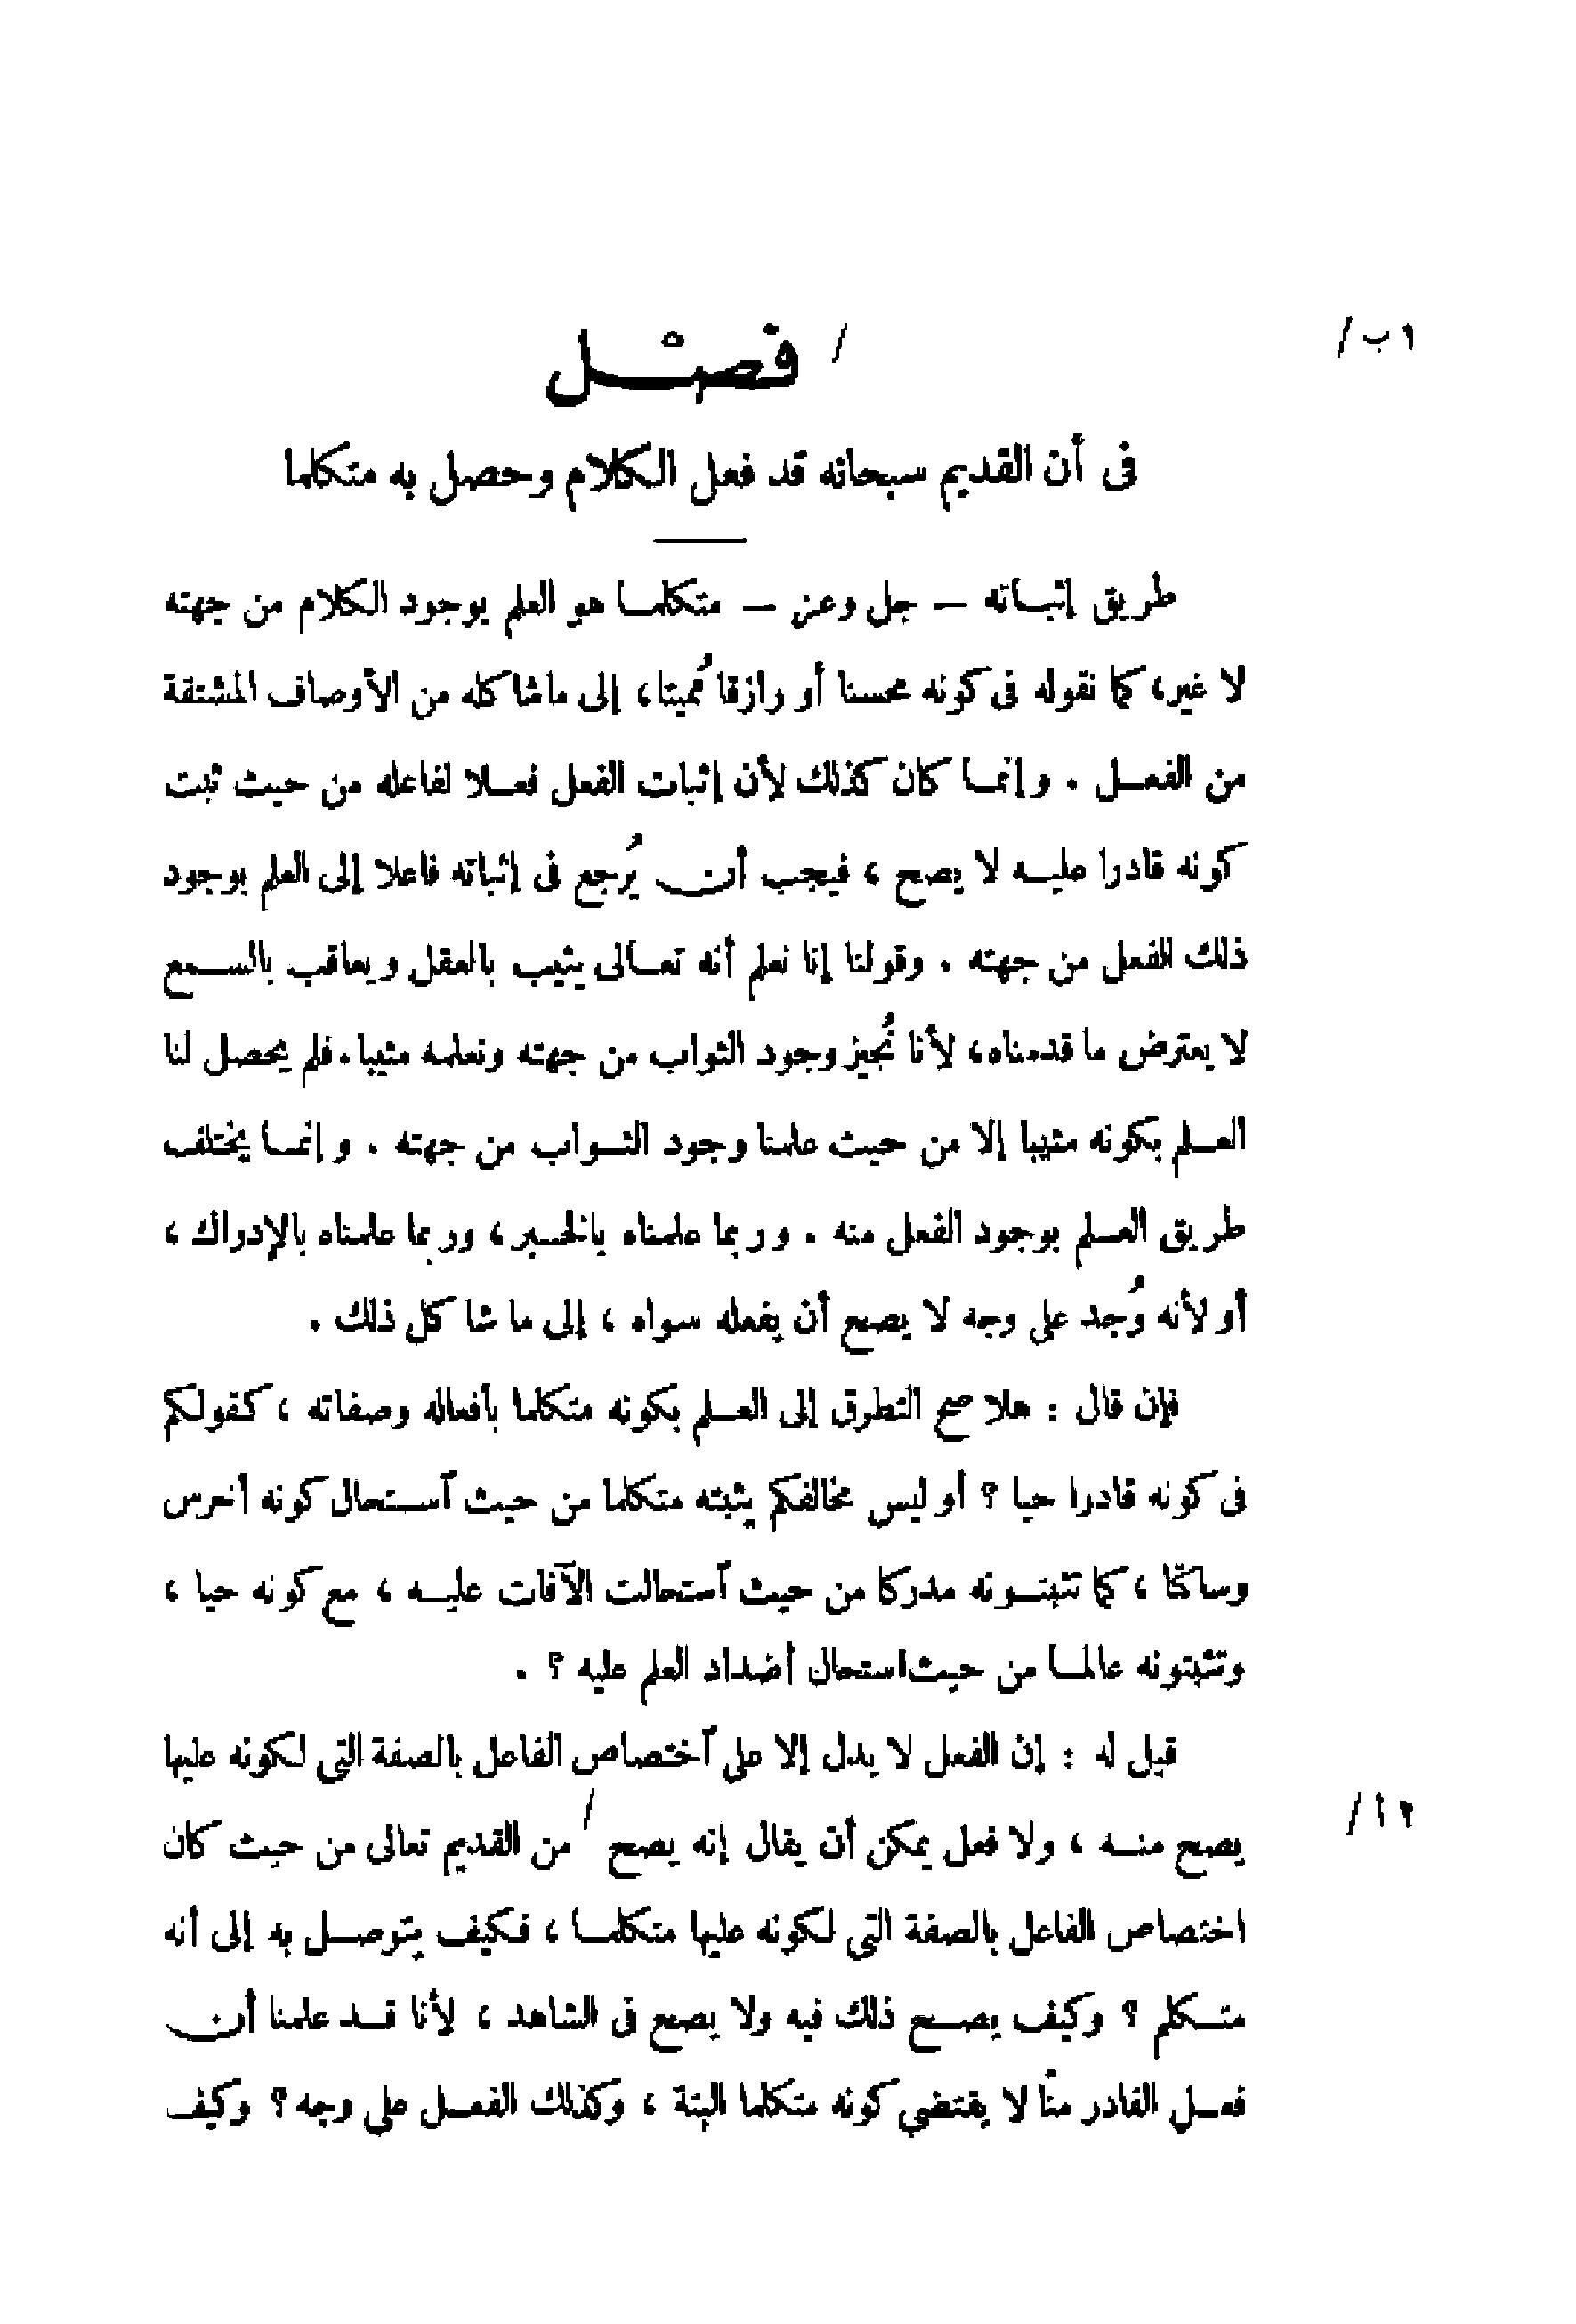 ١ ب /
/ فصْـــل
فى أن القديم سبحانه قد فعل الكلام وحصل به متكلما
طريق إثبـاته — جل وعز — متكلمـا هو العلم بوجود الكلام من جهته
لا غير، كما نقوله فى كونه محسنا أو رازقا مُميتا، إلى ماشاكله من الأوصاف المشتقة
من الفعـل . وإنمـا كان كذلك لأن إثبات الفعل فعـلا لفاعله من حيث ثبت
كونه قادرا عليـه لا يصح ، فيجب أن يُرجع فى إثباته فاعلا إلى العلم بوجود
ذلك الفعل من جهته . وقولنا إنا نعلم أنه تعـالى يثيب بالعقل ويعاقب بالســمع
لا يعترض ما قدمناه، لأنا نُجيز وجود الثواب من جهته ونعلمه مثيبا . فلم يحصل لنا
العـلم بكونه مثيبا إلا من حيث علمنا وجود الثـواب من جهته . وإنمـا يختلف
طريق العـلم بوجود الفعل منه . وربما علمناه بالخـبر ، وربما علمناه بالإدراك ،
أو لأنه وُجد على وجه لا يصح أن يفعله سواه ، إلى ما شا كل ذلك .
فإن قال : هلا صح التطرق إلى العـلم بكونه متكلما بأفعاله وصفاته ، كـقولـكم
فى كونه قادرا حيا ؟ أو ليس مخالفكم يثبته متكلما من حيث آسـتحال كونه أخرس
وساكتًا ، كما تثبتـونه مدركا من حيث آستحالت الآفات عليـه ، مع كونه حيا ،
وتثبتونه عالمـا من حيث استحال أضداد العلم عليه ؟ .
قيل له : إن الفعل لا يدل إلا على آختصاص الفاعل بالصفة التى لـكونه عليها
٢ أ /
يصح منـه ، ولا فعل يمكن أن يقال إنه يصح / من القديم تعالى من حيث كان
اختصاص الفاعل بالصفة التى لـكونه عليها متكلمـا ، فـكيف يتوصـل به إلى أنه
متـكلم ؟ وكيف يصـح ذلك فيه ولا يصح فى الشاهد ، لأنا قـد علمنا أن
فعـل القادر منّا لا يقتضى كونه متكلما البتة ، وكذلك الفعـل على وجه ؟ وكيف